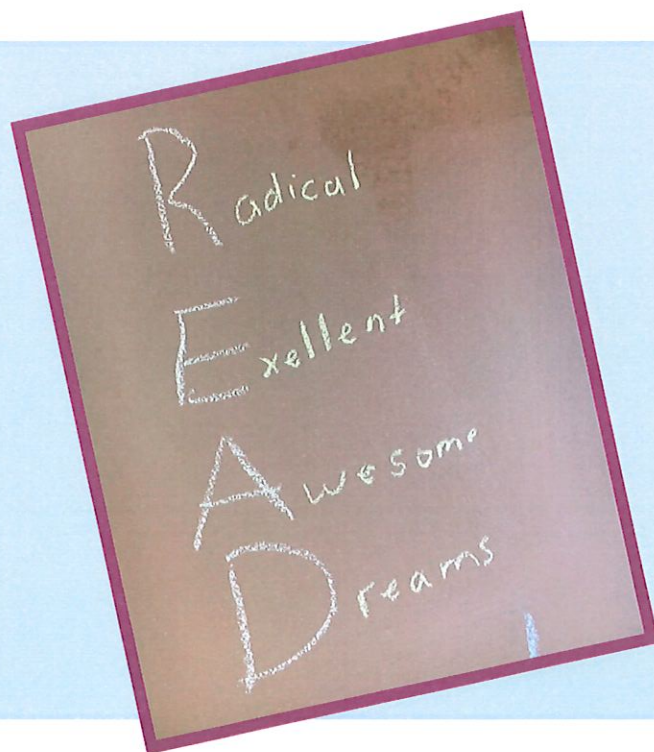 Radical
Exellent
Awesome
Dreams